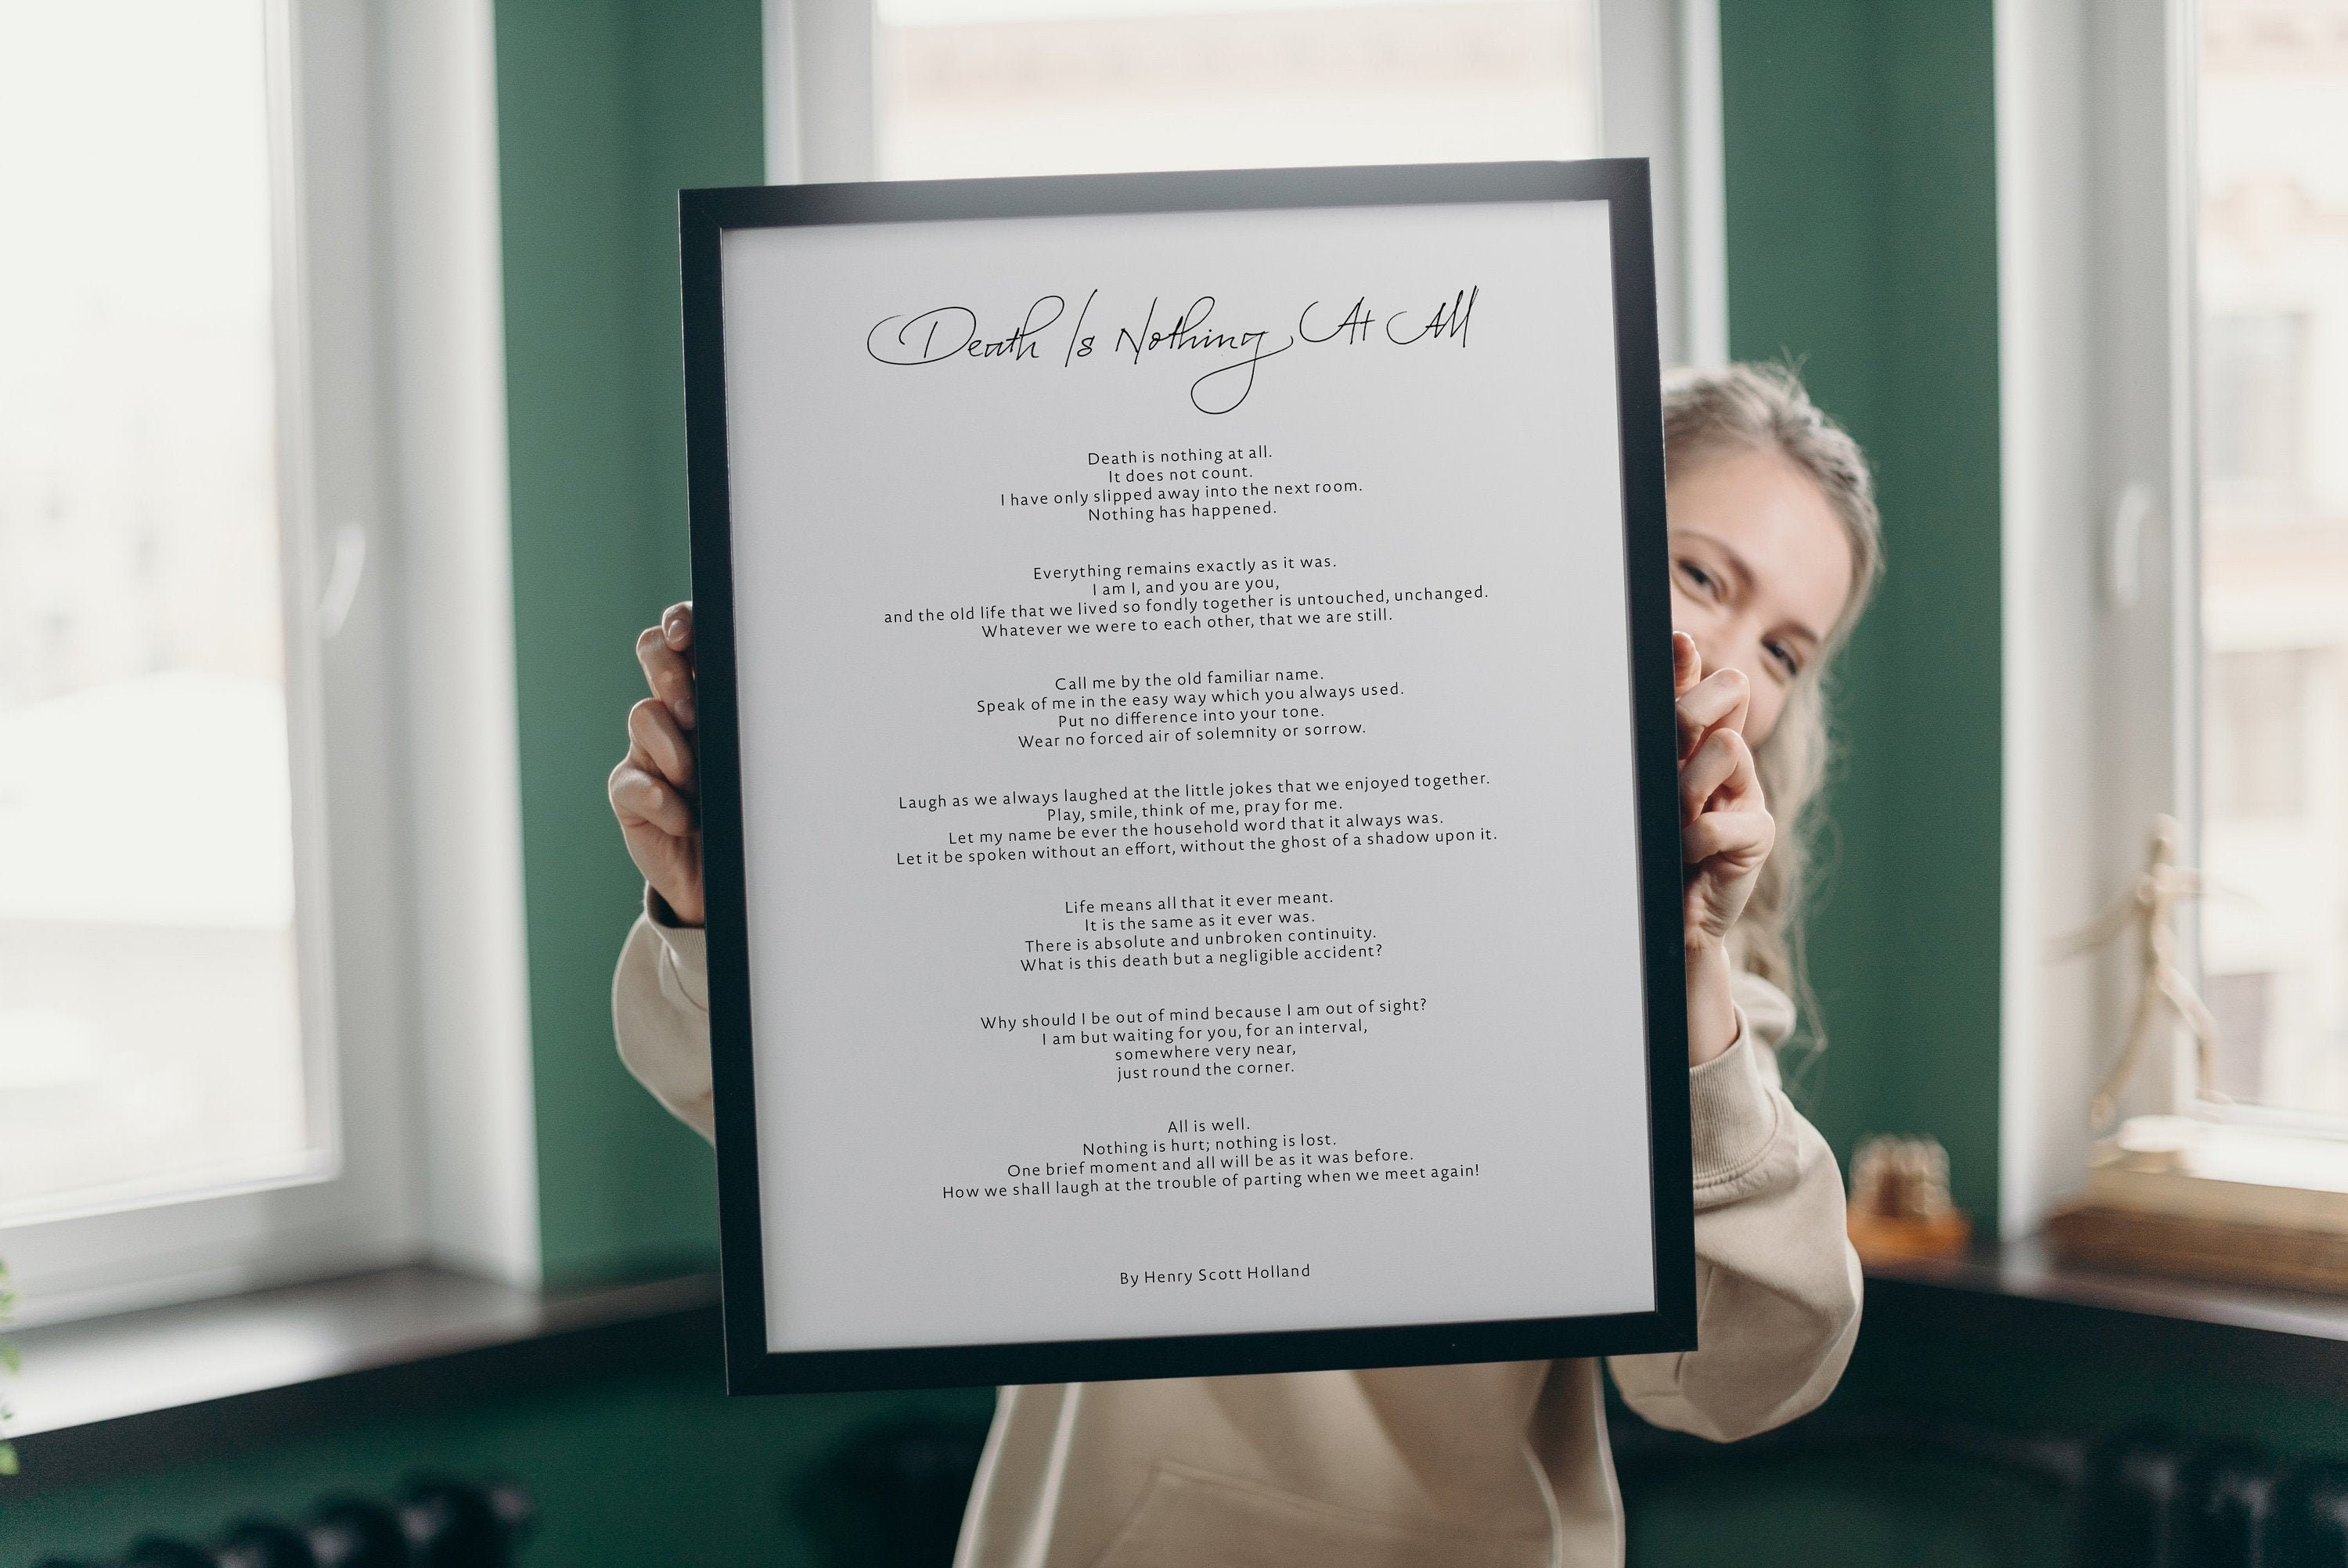 Death Is Nothing At All
Death is nothing at all.
It does not count.
I have only slipped away into the next room.
Nothing has happened.
Everything remains exactly as it was.
I am I, and you are you,
and the old life that we lived so fondly together is untouched, unchanged.
Whatever we were to each other, that we are still.
Call me by the old familiar name.
Speak of me in the easy way which you always used.
Put no difference into your tone.
Wear no forced air of solemnity or sorrow.
Laugh as we always laughed at the little jokes that we enjoyed together.
Play, smile, think of me, pray for me.
Let my name be ever the household word that it always was.
Let it be spoken without an effort, without the ghost of a shadow upon it.
Life means all that it ever meant.
It is the same as it ever was.
There is absolute and unbroken continuity.
What is this death but a negligible accident?
Why should I be out of mind because I am out of sight?
I am but waiting for you, for an interval,
somewhere very near,
just round the corner.
All is well.
Nothing is hurt; nothing is lost.
One brief moment and all will be as it was before.
How we shall laugh at the trouble of parting when we meet again!
By Henry Scott Holland